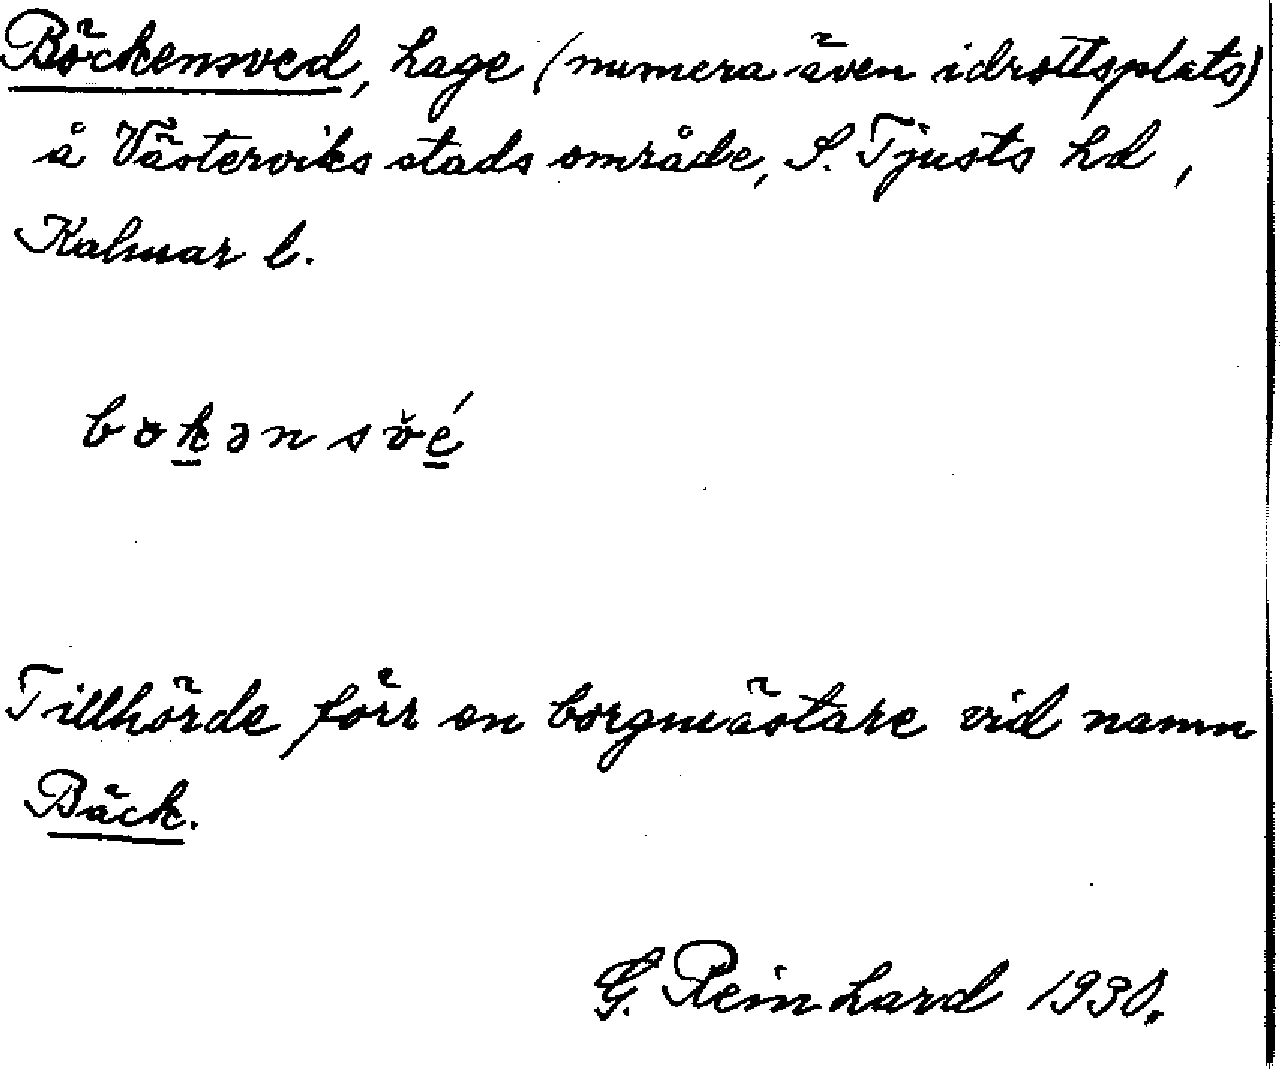 Böckensved, hage (numera även idrottsplats)
å Västerviks stads område, S. Tjusts hd,
Kalmar l.
bökənsvé
Tillhörde förr en borgmästare vid namn
Bäck.
G. Reinhard 1930.